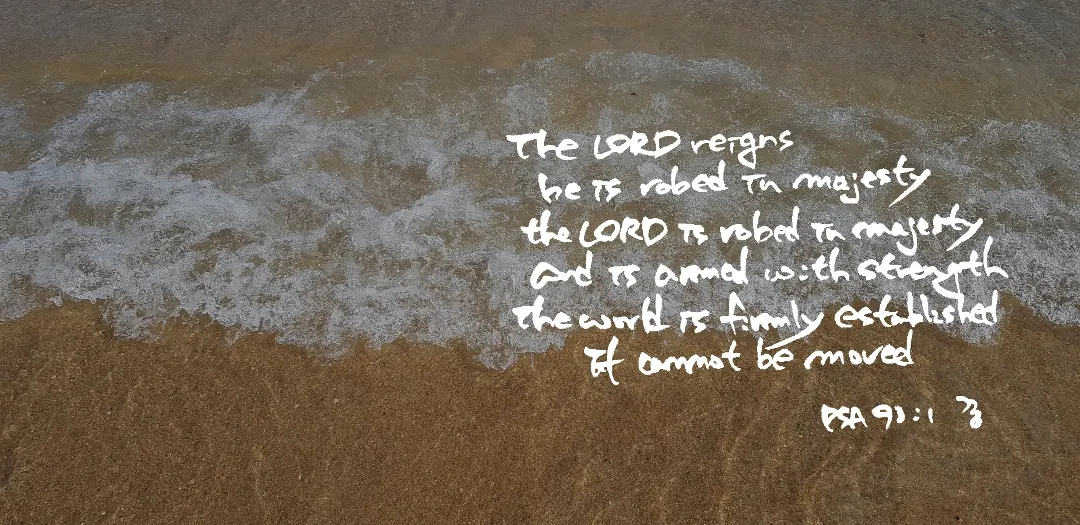 The LORD reigns
he is robed in majesty
the LORD is robed in majesty
and is armed with strength
The world is firmly established
It cannot be moved
PSA 93:1